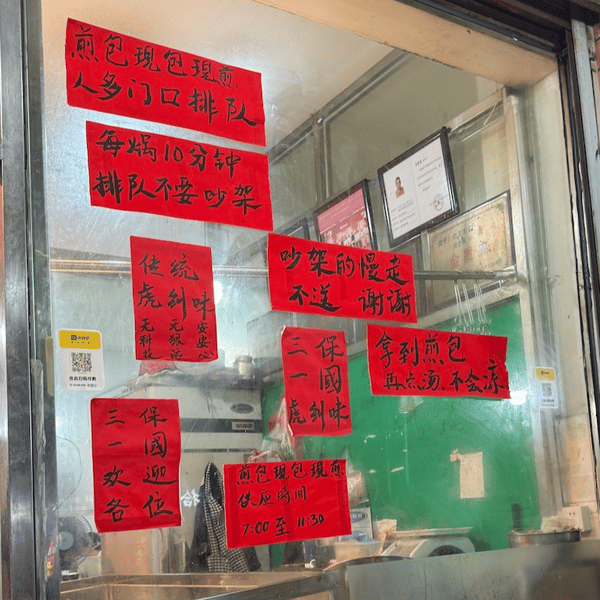 煎包現包現煎
人多门口排队
每煱10分钟
排队不要吵架
吵架的慢走
不送 谢谢
传統
虎 味
无科技
无狠活
安安心
三 保
一 國
虎 味
拿到煎包
再点汤.不会凉
三 保
一 國
欢 迎
各 位
煎包現包現煎
供应时间
7:00至11:30